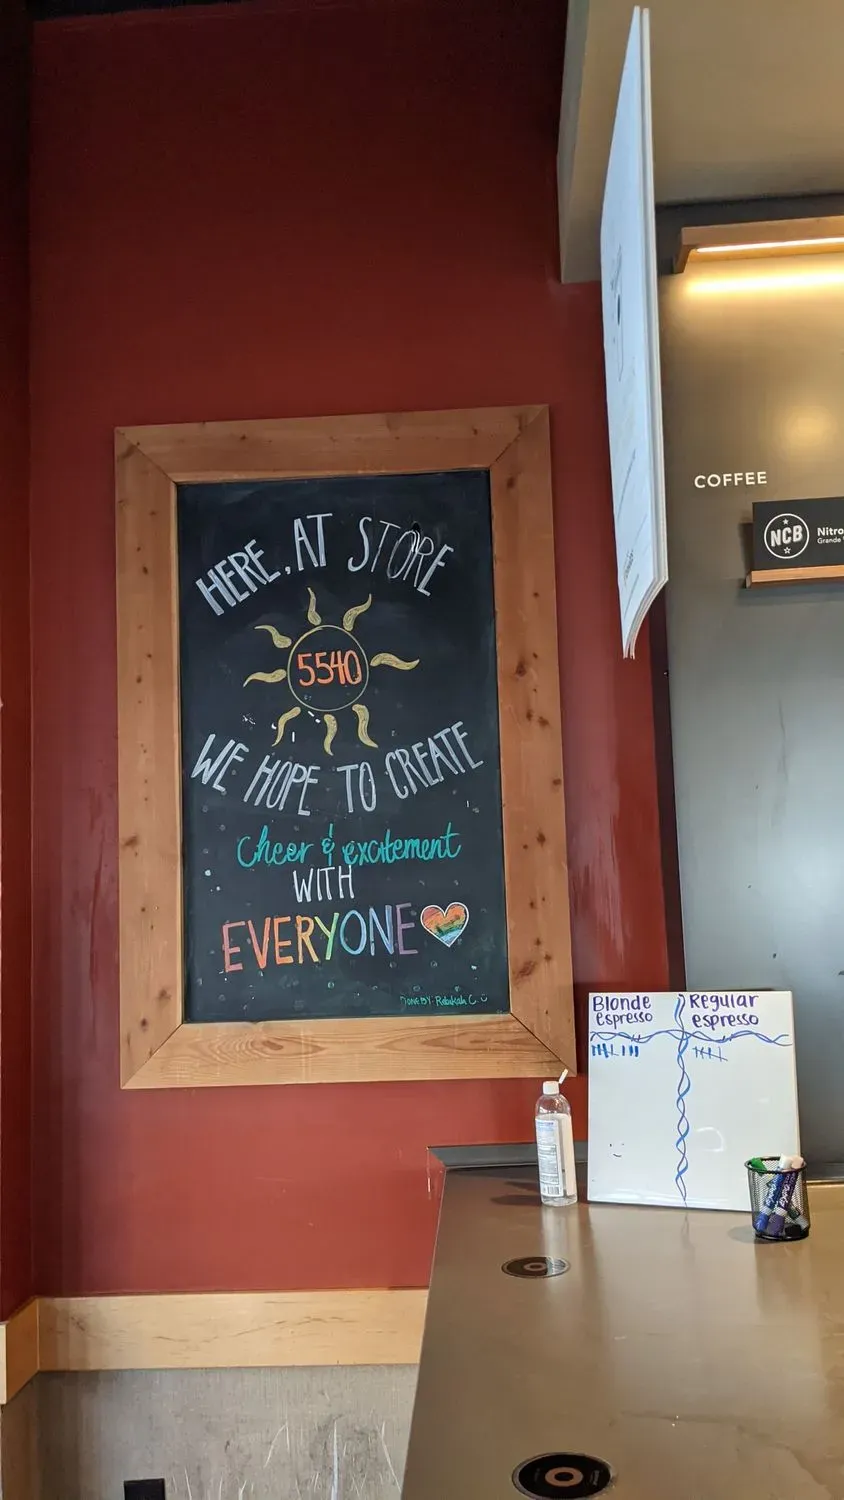 HERE, AT STORE
5540
WE HOPE TO CREATE
Cheer & excitement
WITH
EVERYONE
DONE BY: Rebekah C.
COFFEE
NCB
Nitro
Grande
Blonde espresso
Regular espresso